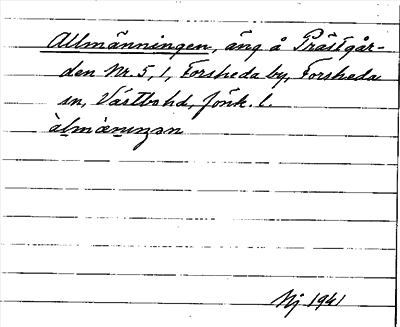 Allmänningen, äng å Prästgår-
den Nr. 5, 1, Forsheda by, Forsheda
sn, Västbo hd, Jönk. l.
àlmànıŋən
Nj 1941